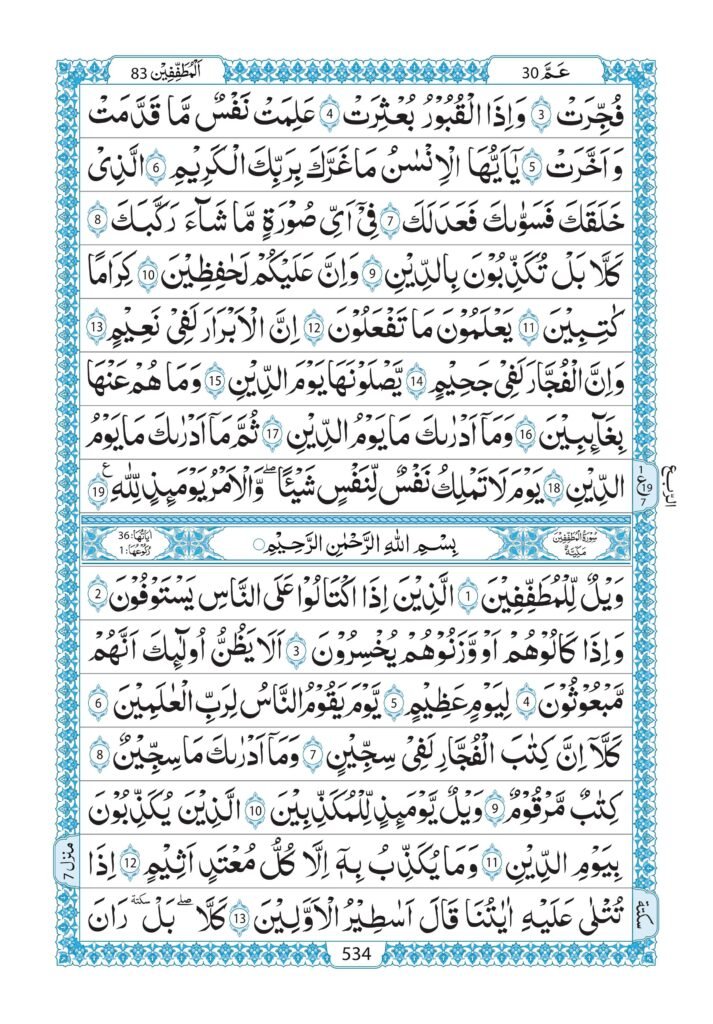 عَمَّ 30
اَلْمُطَفِّفِيْن 83
فُجِّرَتْ 3 وَاِذَا الْقُبُوْرُ بُعْثِرَتْ 4 عَلِمَتْ نَفْسٌ مَّا قَدَّمَتْ
وَاَخَّرَتْ 5 يٰٓاَيُّهَا الْاِنْسٰنُ مَا غَرَّكَ بِرَبِّكَ الْكَرِيْمِ 6 الَّذِيْ
خَلَقَكَ فَسَوّٰىكَ فَعَدَلَكَ 7 فِيْٓ اَيِّ صُوْرَةٍ مَّا شَآءَ رَكَّبَكَ 8
كَلَّا بَلْ تُكَذِّبُوْنَ بِالدِّيْنِ 9 وَاِنَّ عَلَيْكُمْ لَحٰفِظِيْنَ 10 كِرَامًا
كٰتِبِيْنَ 11 يَعْلَمُوْنَ مَا تَفْعَلُوْنَ 12 اِنَّ الْاَبْرَارَ لَفِيْ نَعِيْمٍ 13
وَاِنَّ الْفُجَّارَ لَفِيْ جَحِيْمٍ 14 يَّصْلَوْنَهَا يَوْمَ الدِّيْنِ 15 وَمَا هُمْ عَنْهَا
بِغَآئِبِيْنَ 16 وَمَآ اَدْرٰىكَ مَا يَوْمُ الدِّيْنِ 17 ثُمَّ مَآ اَدْرٰىكَ مَا يَوْمُ
الدِّيْنِ 18 يَوْمَ لَا تَمْلِكُ نَفْسٌ لِّنَفْسٍ شَيْـًٔا ۖ وَالْاَمْرُ يَوْمَئِذٍ لِّلّٰهِ 19 ع
1 ع 19 7
الرُّبع
سُوْرَةُ الْمُطَفِّفِيْنَ مَكِّيَّةٌ
بِسْمِ اللهِ الرَّحْمٰنِ الرَّحِيْمِ
اٰيَاتُهَا: 36 رُكُوْعُهَا: 1
وَيْلٌ لِّلْمُطَفِّفِيْنَ 1 الَّذِيْنَ اِذَا اكْتَالُوْا عَلَى النَّاسِ يَسْتَوْفُوْنَ 2
وَاِذَا كَالُوْهُمْ اَوْ وَّزَنُوْهُمْ يُخْسِرُوْنَ 3 اَلَا يَظُنُّ اُولٰٓئِكَ اَنَّهُمْ
مَّبْعُوْثُوْنَ 4 لِيَوْمٍ عَظِيْمٍ 5 يَّوْمَ يَقُوْمُ النَّاسُ لِرَبِّ الْعٰلَمِيْنَ 6
كَلَّآ اِنَّ كِتٰبَ الْفُجَّارِ لَفِيْ سِجِّيْنٍ 7 وَمَآ اَدْرٰىكَ مَا سِجِّيْنٌ 8
كِتٰبٌ مَّرْقُوْمٌ 9 وَيْلٌ يَّوْمَئِذٍ لِّلْمُكَذِّبِيْنَ 10 الَّذِيْنَ يُكَذِّبُوْنَ
بِيَوْمِ الدِّيْنِ 11 وَمَا يُكَذِّبُ بِهٖٓ اِلَّا كُلُّ مُعْتَدٍ اَثِيْمٍ 12 اِذَا
منزل 7
تُتْلٰى عَلَيْهِ اٰيٰتُنَا قَالَ اَسَاطِيْرُ الْاَوَّلِيْنَ 13 كَلَّا ۖ بَلْ سكتة رَانَ
سكتة
534